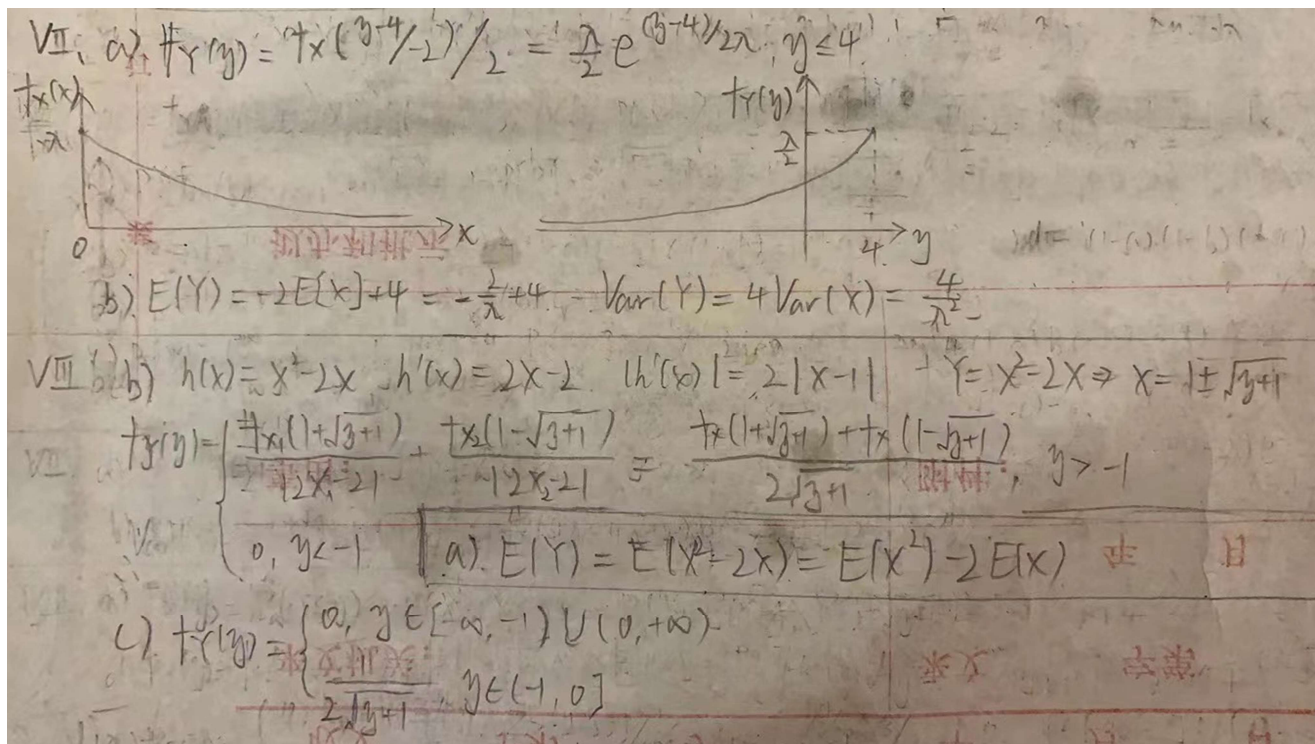 VII. a) f_Y(y) = f_X(y-4/-2)/2 = λ/2 e^{(y-4)/2λ}, y≤4
f_X(x) λ 0 x f_Y(y) λ/2 4 y
b). E(Y) = -2E[X]+4 = -2/λ+4 Var(Y) = 4Var(X) = 4/λ²
VIII b) h(x) = x²-2x h'(x) = 2x-2 |h'(x)| = 2|x-1| Y = X²-2X ⇒ X = 1±√(y+1)
f_Y(y) = { f_{X1}(1+√(y+1))/|2X₁-2| + f_{X2}(1-√(y+1))/|2X₂-2| = (f_X(1+√(y+1)) + f_X(1-√(y+1)))/(2√(y+1)), y>-1
0, y<-1 a). E(Y) = E(X²-2X) = E(X²)-2E(X)
c). f_Y(y) = { 0, y∈[-∞,-1)∪(0,+∞)
1/(2√(y+1)) y∈(-1,0]